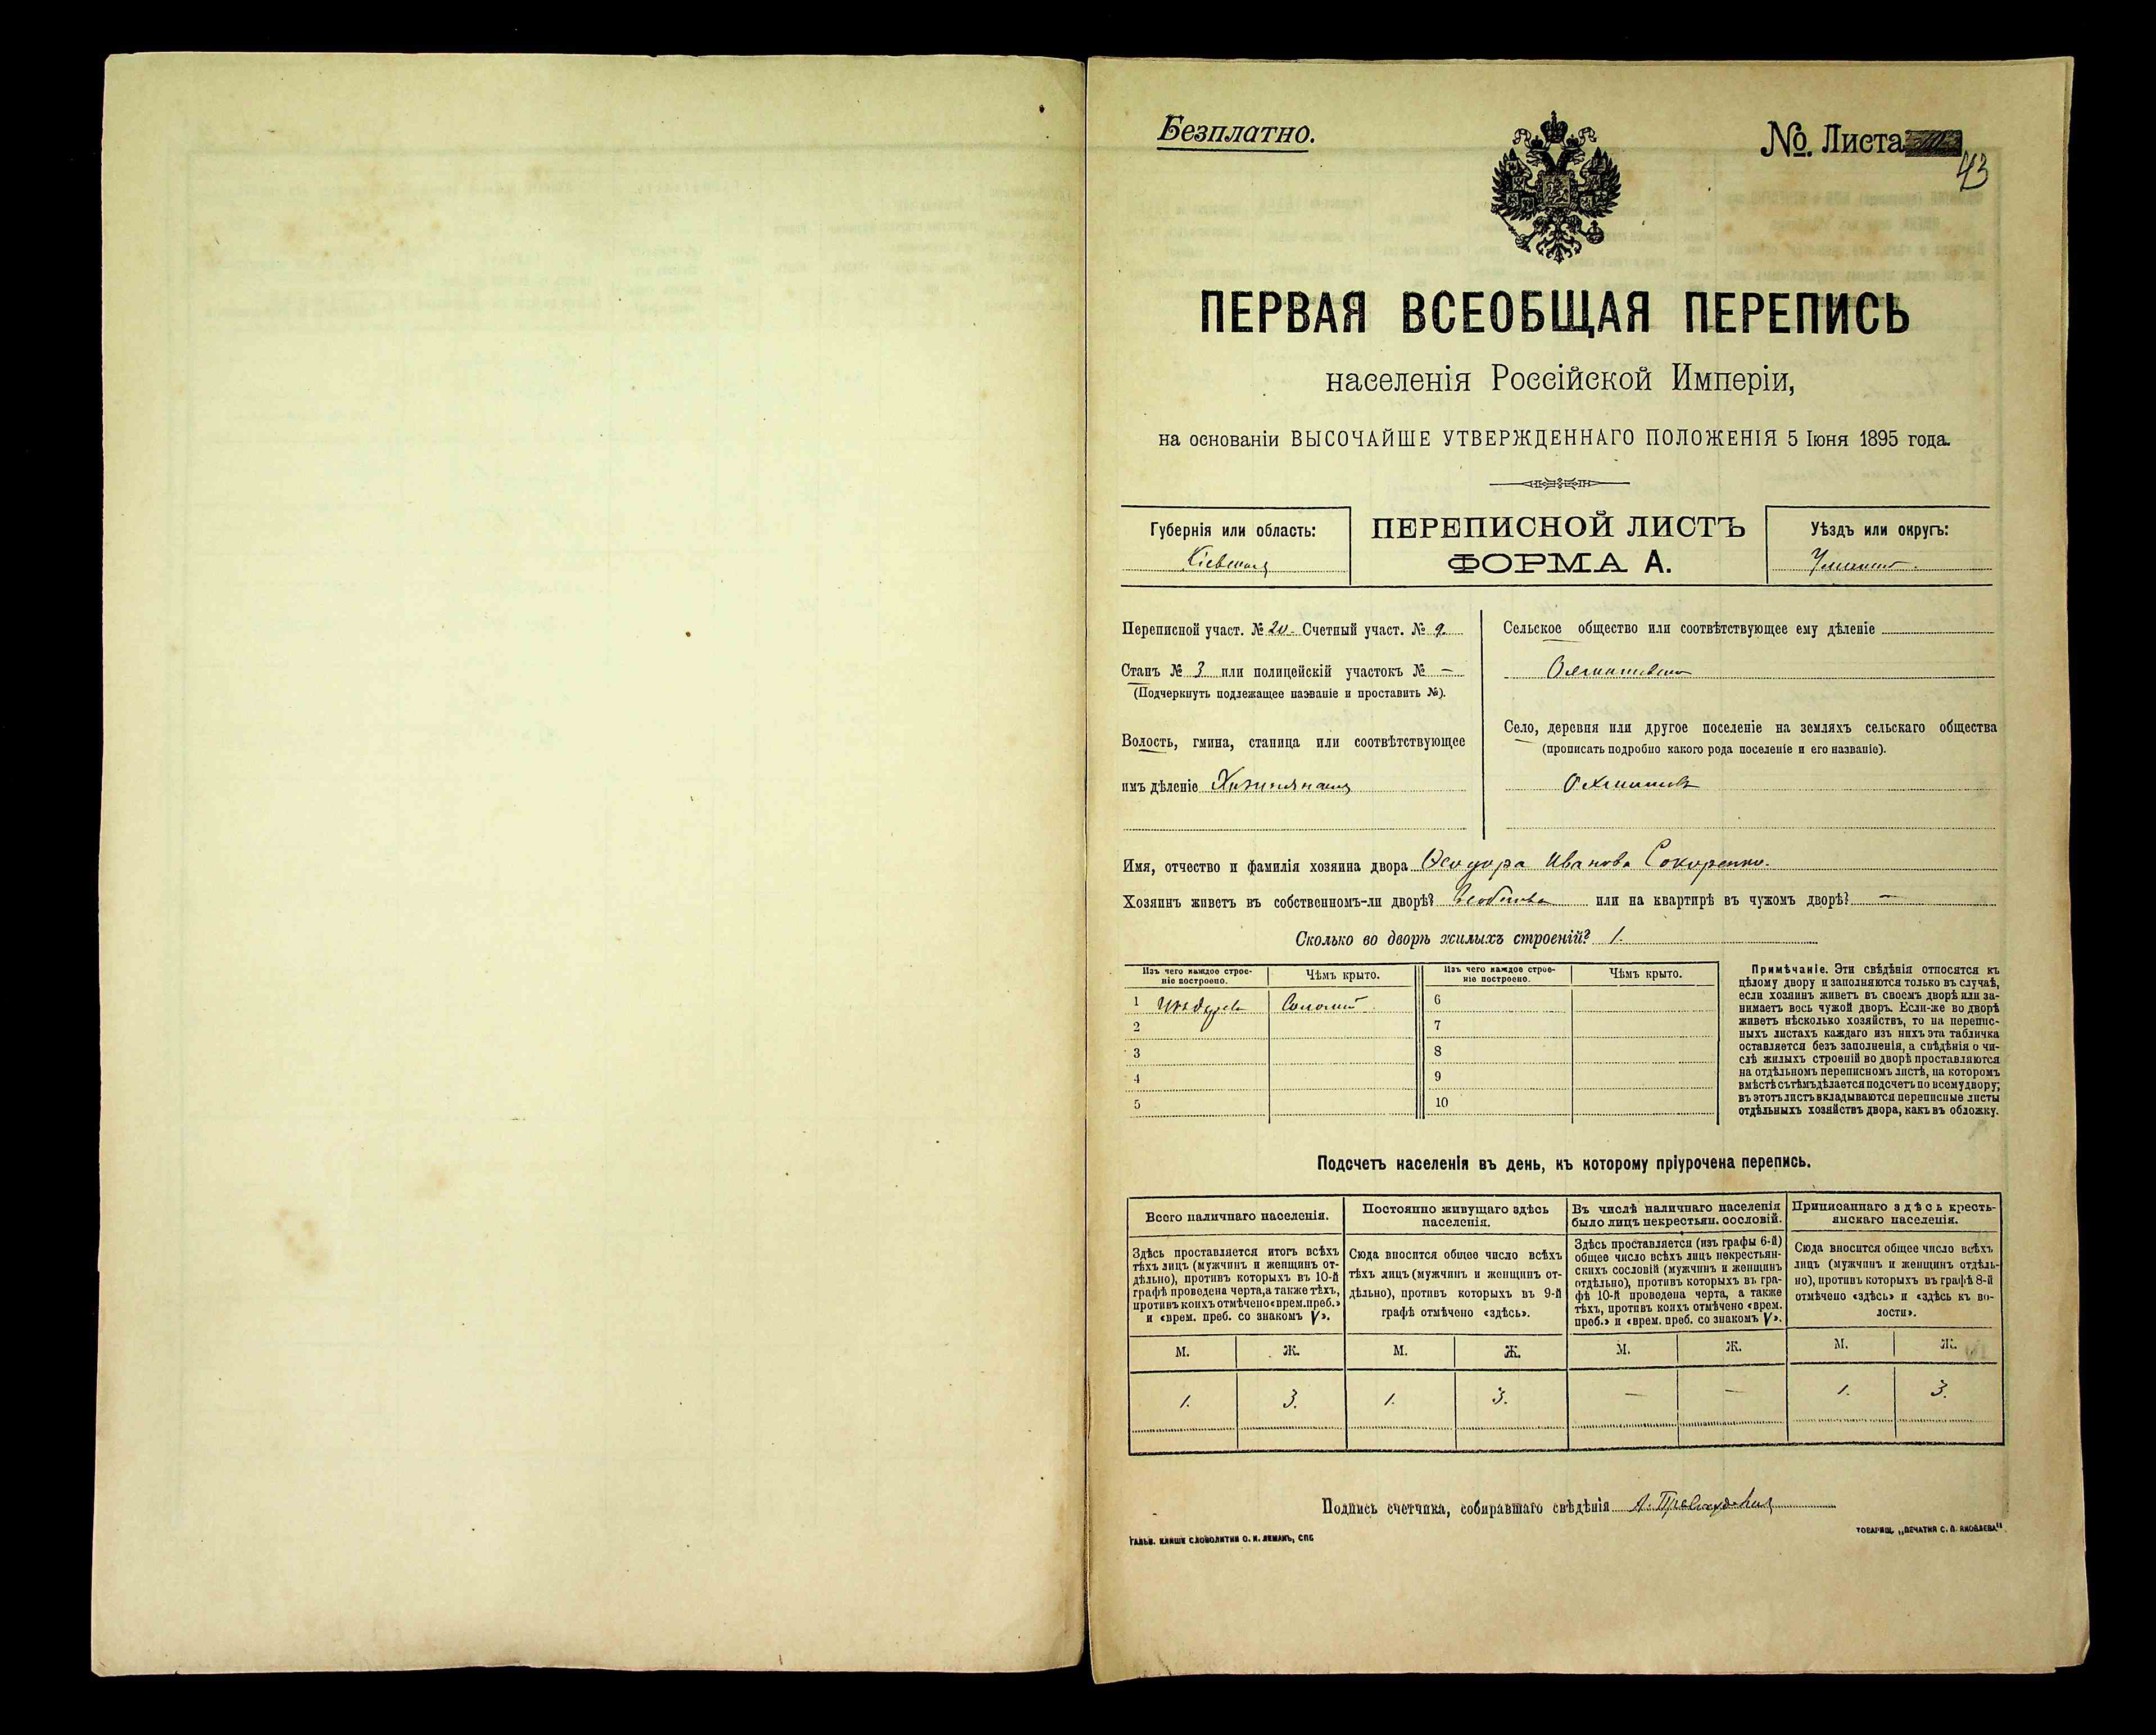 Безплатно.
№ Листа 43
ПЕРВАЯ ВСЕОБЩАЯ ПЕРЕПИСЬ
населенія Россійской Имперіи,
на основаніи ВЫСОЧАЙШЕ УТВЕРЖДЕННАГО ПОЛОЖЕНІЯ 5 Іюня 1895 года.
Губернія или область:
Кіевская
ПЕРЕПИСНОЙ ЛИСТЪ
ФОРМА А.
Уѣздъ или округъ:
Уманскій
Переписной участ. № 20 Счетный участ. № 9.
Станъ № 3 или полицейскій участокъ № —
(Подчеркнуть подлежащее названіе и проставить №).
Волость, гмина, станица или соотвѣтствующее
имъ дѣленіе
Сельское общество или соотвѣтствующее ему дѣленіе
Село, деревня или другое поселеніе на земляхъ сельскаго общества
(прописать подробно какого рода поселеніе и его названіе).
Охматовъ
Имя, отчество и фамилія хозяина двора Ѳеодора Иванова Сокоренко.
Хозяинъ живетъ въ собственномъ-ли дворѣ? или на квартирѣ въ чужомъ дворѣ? —
Сколько во дворѣ жилыхъ строеній? 1.
Изъ чего каждое строе-
ніе построено.
Чѣмъ крыто.
Изъ чего каждое строе-
ніе построено.
Чѣмъ крыто.
1 Изъ дерева Соломой 6
2 7
3 8
4 9
5 10
Примѣчаніе. Эти свѣдѣнія относятся къ
цѣлому двору и заполняются только въ случаѣ,
если хозяинъ живетъ въ своемъ дворѣ или за-
нимаетъ весь чужой дворъ. Если-же во дворѣ
живетъ нѣсколько хозяйствъ, то на перепис-
ныхъ листахъ каждаго изъ нихъ эта табличка
оставляется безъ заполненія, а свѣдѣнія о чи-
слѣ жилыхъ строеній во дворѣ проставляются
на отдѣльномъ переписномъ листѣ, на которомъ
вмѣстѣ съ тѣмъ дѣлается подсчетъ по всему двору;
въ этотъ листъ вкладываются переписные листы
отдѣльныхъ хозяйствъ двора, какъ въ обложку.
Подсчетъ населенія въ день, къ которому пріурочена перепись.
Всего наличнаго населенія.
Постоянно живущаго здѣсь
населенія.
Въ числѣ наличнаго населенія
было лицъ некрестьян. сословій.
Приписаннаго здѣсь кресть-
янскаго населенія.
Здѣсь проставляется итогъ всѣхъ
тѣхъ лицъ (мужчинъ и женщинъ от-
дѣльно), противъ которыхъ въ 10-й
графѣ проведена черта, а также тѣхъ,
противъ коихъ отмѣчено «врем. преб.»
и «врем. преб. со знакомъ V».
Сюда вносится общее число всѣхъ
тѣхъ лицъ (мужчинъ и женщинъ от-
дѣльно), противъ которыхъ въ 9-й
графѣ отмѣчено «здѣсь».
Здѣсь проставляется (изъ графы 6-й)
общее число всѣхъ лицъ некрестьян-
скихъ сословій (мужчинъ и женщинъ
отдѣльно), противъ которыхъ въ гра-
фѣ 10-й проведена черта, а также
тѣхъ, противъ коихъ отмѣчено «врем.
преб.» и «врем. преб. со знакомъ V».
Сюда вносится общее число всѣхъ
лицъ (мужчинъ и женщинъ отдѣль-
но), противъ которыхъ въ графѣ 8-й
отмѣчено «здѣсь» и «здѣсь къ во-
лости».
М. Ж. М. Ж. М. Ж. М. Ж.
1. 3. 1. 3. — — 1. 3.
Подпись счетчика, собиравшаго свѣдѣнія
ГАЛЬВ. КЛИШЕ СЛОВОЛИТНИ О. И. ЛЕМАНЪ, СПБ
ТОВАРИЩ. „ПЕЧАТНЯ С. П. ЯКОВЛЕВА"